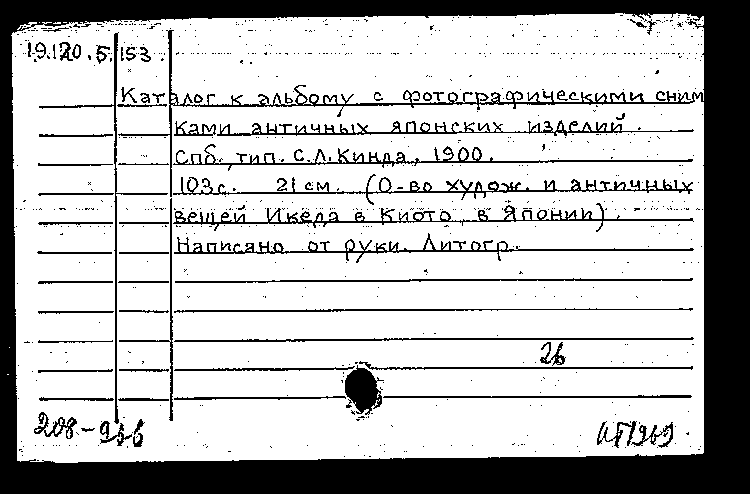 19.120.5.153.
Каталог к альбому с фотографическими сним
ками античных японских изделий.
Спб., тип. С.Л.Кинда, 1900.
103с. 21см. (О-во худож. и античных
вещей Икеда в Киото, в Японии).
Написано от руки. Литогр.
26
208-